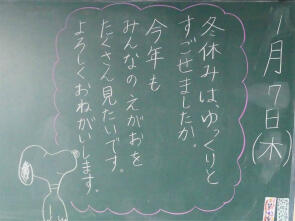 1月7日(木)
冬休みは、ゆっくりと
すごせましたか。
今年も
みんなのえがおを
たくさん見たいです。
よろしくおねがいします。